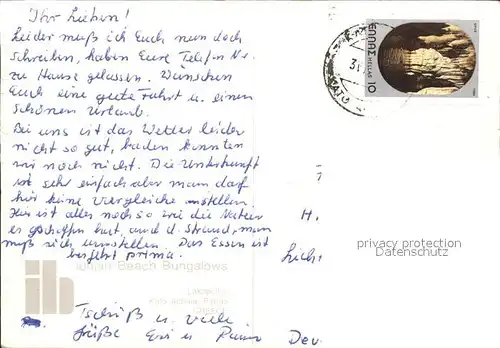 Ihr Lieben!
Leider muß ich Euch nun doch
schreiben, haben Eure Telefon Nr.
zu Hause gelassen. Wünschen
Euch eine gute Fahrt u. einen
schönen Urlaub.
Bei uns ist das Wetter leider
nicht so gut, baden konnten
wir noch nicht. Die Unterkunft
ist sehr einfach aber man darf
hier keine Vergleiche anstellen.
Hier ist alles noch so wie die Natur
es geschaffen hat, und d. Strand, man
muß sich umstellen. Das Essen ist
prima.
Tschüß u. viele
Grüße
ΕΛΛΑΣ
HELLAS
10
H.
Licht
Deu
privacy protection
Datenschutz
Ionian Beach Bungalows
ib